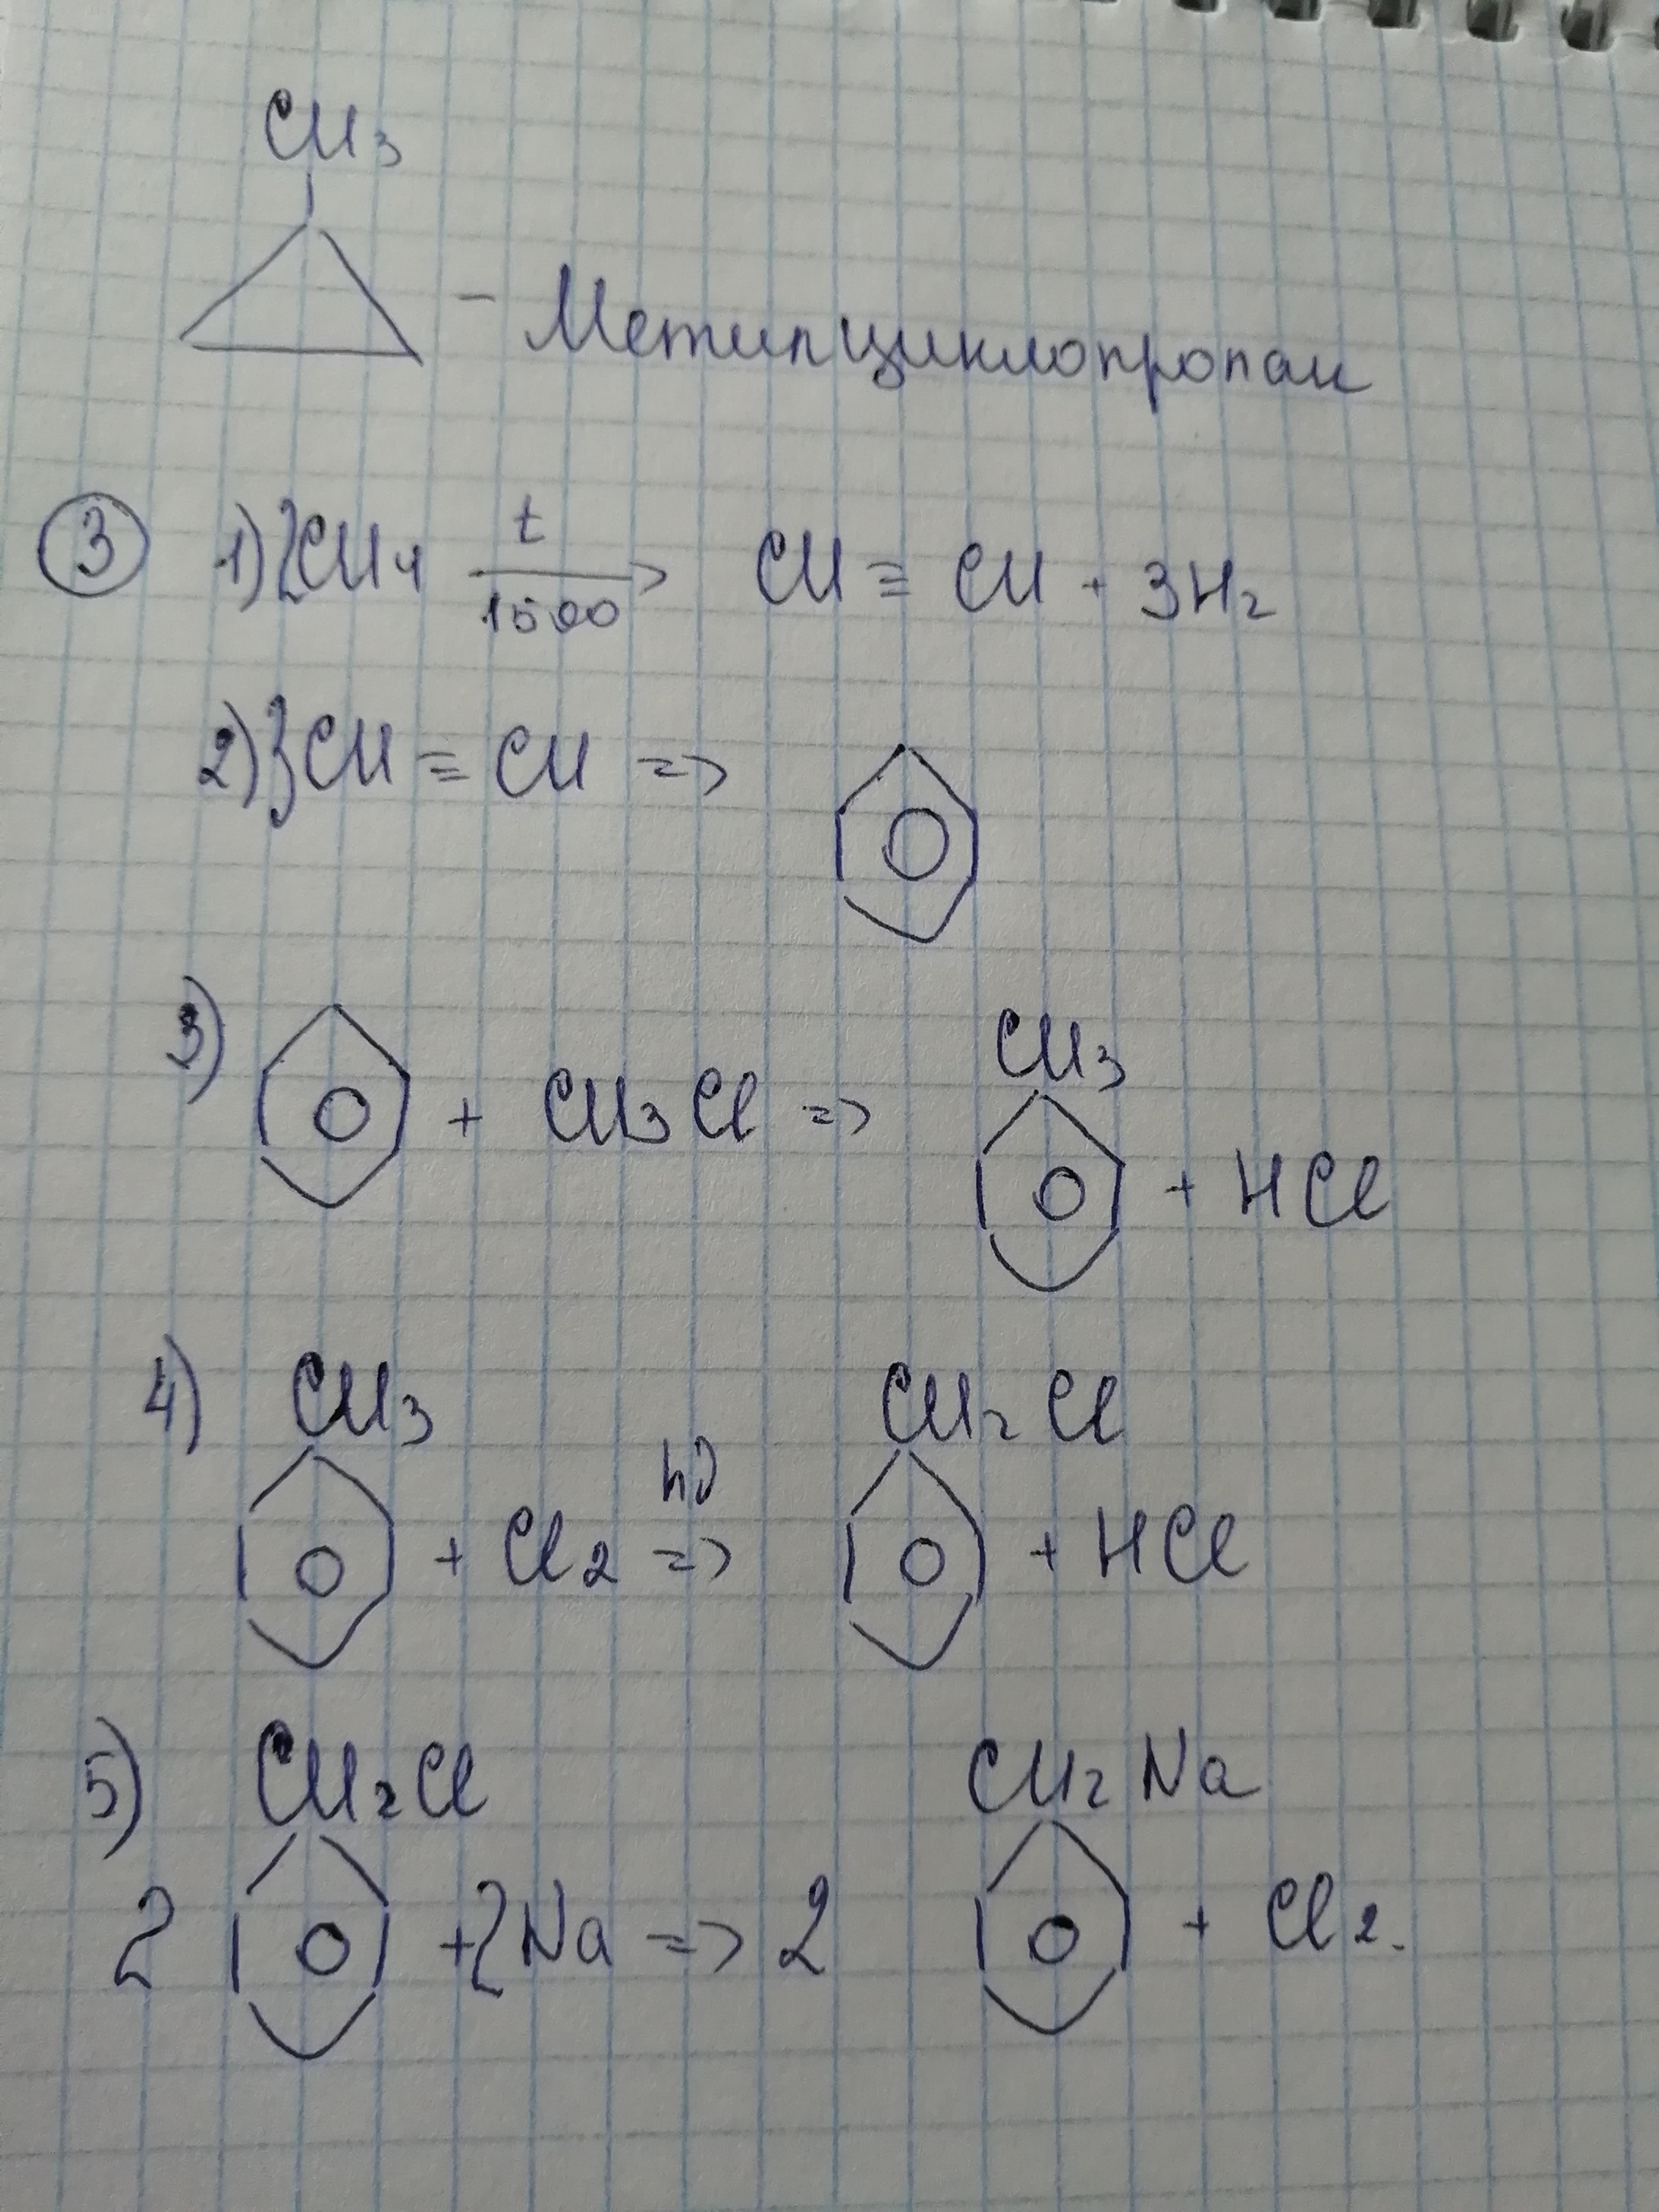 CH3
- Метилциклопропан
3 1) 2CH4 t → 1500 CH ≡ CH + 3H2
2) 3CH ≡ CH =>
3) + CH3Cl => CH3 + HCl
4) CH3 + Cl2 hν => CH2Cl + HCl
5) 2 CH2Cl + 2Na => 2 CH2Na + Cl2.